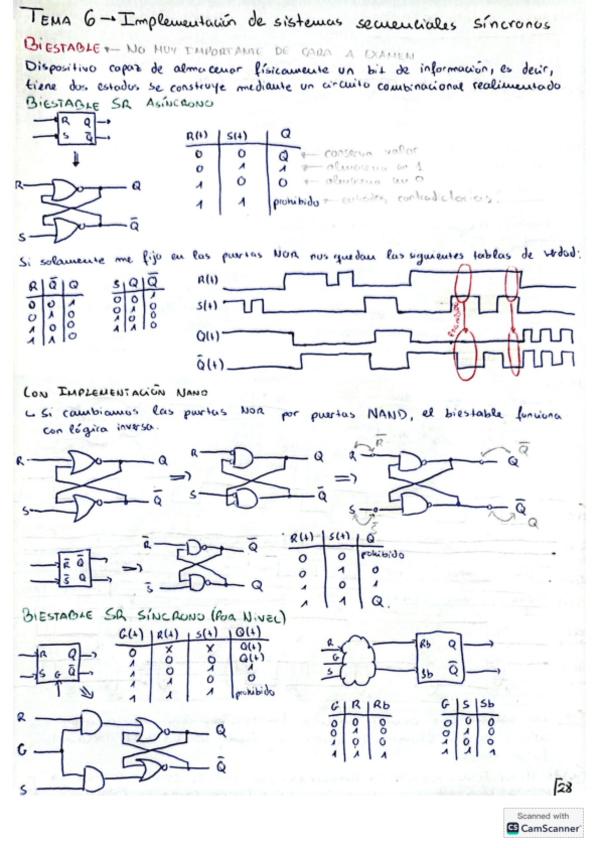 TEMA 6 → Implementación de sistemas secuenciales síncronos
BIESTABLE ← NO MUY IMPORTANTE DE CARA A EXAMEN
Dispositivo capaz de almacenar físicamente un bit de información, es decir,
tiene dos estados se construye mediante un circuito combinacional realimentado
BIESTABLE SR ASÍNCRONO
R Q
S Q̅
R(t) S(t) Q
0 0 Q ← conserva valor
0 1 1 ← almacena un 1
1 0 0 ← almacena un 0
1 1 prohibido ← salidas contradictorias.
R Q
S Q̅
Si solamente me fijo en las puertas NOR nos quedan las siguientes tablas de verdad:
R Q̅ Q
0 0 1
0 1 0
1 0 0
1 1 0
S Q Q̅
0 0 1
0 1 0
1 0 0
1 1 0
R(t)
S(t)
Q(t)
Q̅(t)
CON IMPLEMENTACIÓN NAND
↳ Si cambiamos las puertas NOR por puertas NAND, el biestable funciona
con lógica inversa.
R Q ⇒ R Q ⇒ R R̅ Q Q̅
S Q̅ S Q̅ S S̅ Q̅ Q
R̅ Q̅ ⇒ R̅ Q̅
S̅ Q S̅ Q
R(t) S(t) Q
0 0 prohibido
0 1 0
1 0 1
1 1 Q
BIESTABLE SR SÍNCRONO (POR NIVEL)
R Q
S G Q̅
G(t) R(t) S(t) Q(t)
0 X X Q(t)
1 0 0 Q(t)
1 0 1 1
1 1 0 0
1 1 1 prohibido
R
G
S
Rb Q
Sb Q̅
G R Rb
0 0 0
0 1 0
1 0 0
1 1 1
G S Sb
0 0 0
0 1 0
1 0 0
1 1 1
R Q
G
S Q̅
28
Scanned with
CS CamScanner